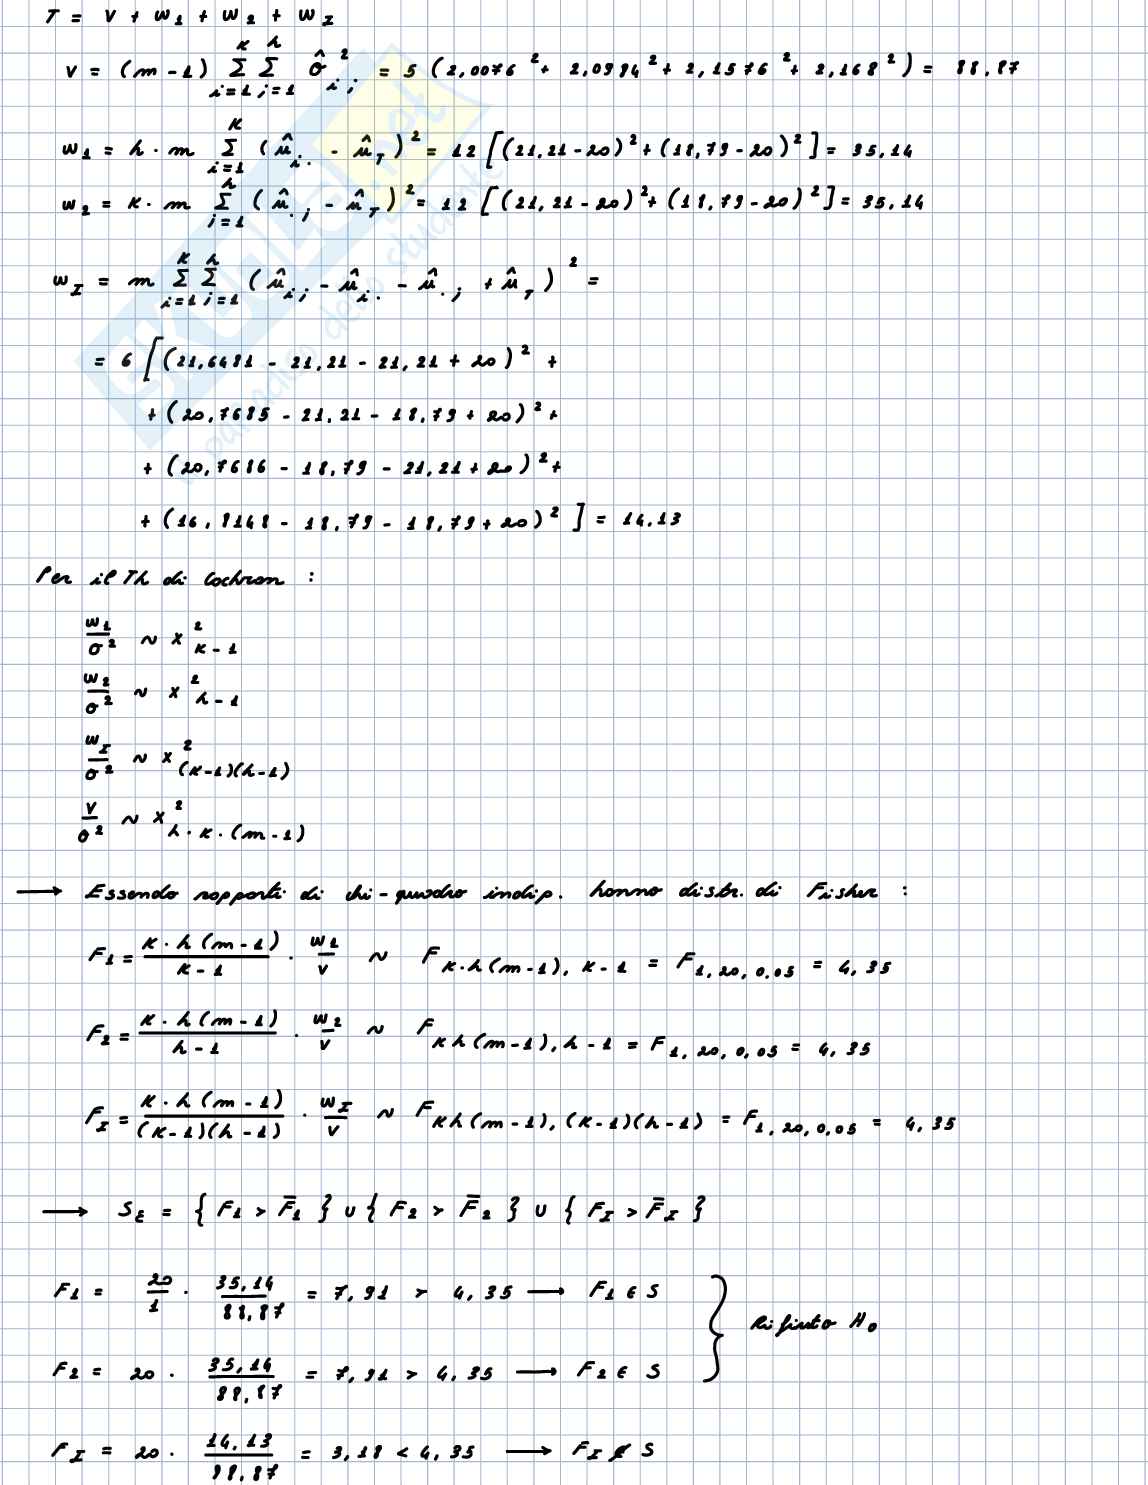 T = V + W₁ + W₂ + W_I
V = (m-1) Σ_{i=1}^{K} Σ_{j=1}^{h} σ̂²_{ij} = 5 (2,0076² + 2,0994² + 2,1576² + 2,168²) = 88,87
W₁ = h · m Σ_{i=1}^{K} (μ̂_{i.} - μ̂_T)² = 12 [(21,21-20)² + (18,79-20)²] = 35,14
W₂ = K · m Σ_{j=1}^{h} (μ̂_{.j} - μ̂_T)² = 12 [(21,21-20)² + (18,79-20)²] = 35,14
W_I = m Σ_{i=1}^{K} Σ_{j=1}^{h} (μ̂_{ij} - μ̂_{i.} - μ̂_{.j} + μ̂_T)² =
= 6 [(21,6481 - 21,21 - 21,21 + 20)² +
+ (20,7685 - 21,21 - 18,79 + 20)² +
+ (20,7686 - 18,79 - 21,21 + 20)² +
+ (16,8148 - 18,79 - 18,79 + 20)²] = 14,13
Per il Th di Cochran :
W₁/σ² ~ X²_{K-1}
W₂/σ² ~ X²_{h-1}
W_I/σ² ~ X²_{(K-1)(h-1)}
V/σ² ~ X²_{h·K·(m-1)}
→ Essendo rapporti di chi-quadro indip. hanno distr. di Fisher :
F₁ = K·h(m-1)/K-1 · W₁/V ~ F_{K·h(m-1), K-1} = F_{1,20,0.05} = 4,35
F₂ = K·h(m-1)/h-1 · W₂/V ~ F_{Kh(m-1), h-1} = F_{1,20,0,05} = 4,35
F_I = K·h(m-1)/(K-1)(h-1) · W_I/V ~ F_{Kh(m-1), (K-1)(h-1)} = F_{1,20,0,05} = 4,35
→ S_ε = {F₁ > F̄₁} ∪ {F₂ > F̄₂} ∪ {F_I > F̄_I}
F₁ = 20/1 · 35,14/88,87 = 7,91 > 4,35 → F₁ ∈ S
Rifiuto H₀
F₂ = 20 · 35,14/88,87 = 7,91 > 4,35 → F₂ ∈ S
F_I = 20 · 14,13/88,87 = 3,18 < 4,35 → F_I ∉ S